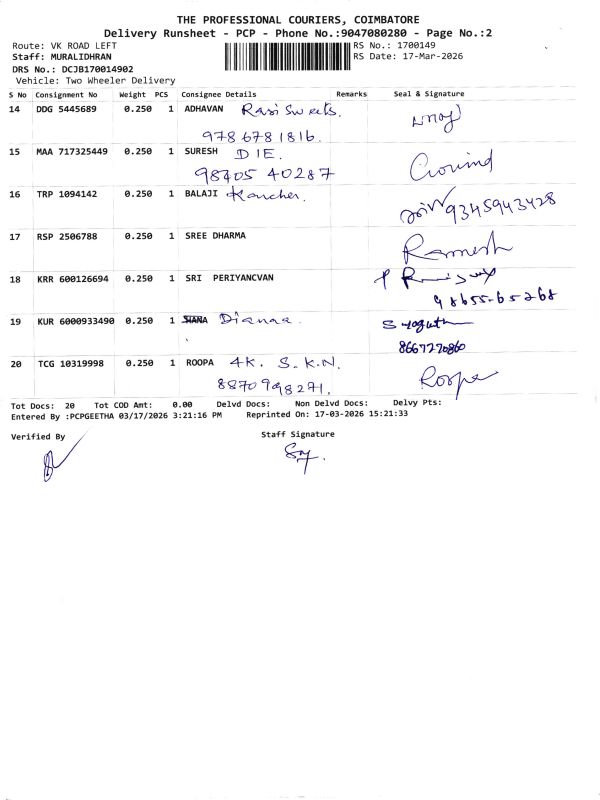 THE PROFESSIONAL COURIERS, COIMBATORE
Delivery Runsheet - PCP - Phone No.:9047080280 - Page No.:2
Route: VK ROAD LEFT RS No.: 1700149
Staff: MURALIDHRAN RS Date: 17-Mar-2026
DRS No.: DCJB170014902
Vehicle: Two Wheeler Delivery
S No Consignment No Weight PCS Consignee Details Remarks Seal & Signature
14 DDG 5445689 0.250 1 ADHAVAN Rasi Sweets.
9786781816.
15 MAA 717325449 0.250 1 SURESH DIE. Govind
98405 40287
16 TRP 1094142 0.250 1 BALAJI Kancher. 9345943428
17 RSP 2506788 0.250 1 SREE DHARMA Ramesh
18 KRR 600126694 0.250 1 SRI PERIYANCVAN
98655-65268
19 KUR 6000933490 0.250 1 SIANA Dianaa.
8667270860
20 TCG 10319998 0.250 1 ROOPA 4K. S.K.N. Roopa
8870998271.
Tot Docs: 20 Tot COD Amt: 0.00 Delvd Docs: Non Delvd Docs: Delvy Pts:
Entered By :PCPGEETHA 03/17/2026 3:21:16 PM Reprinted On: 17-03-2026 15:21:33
Verified By Staff Signature